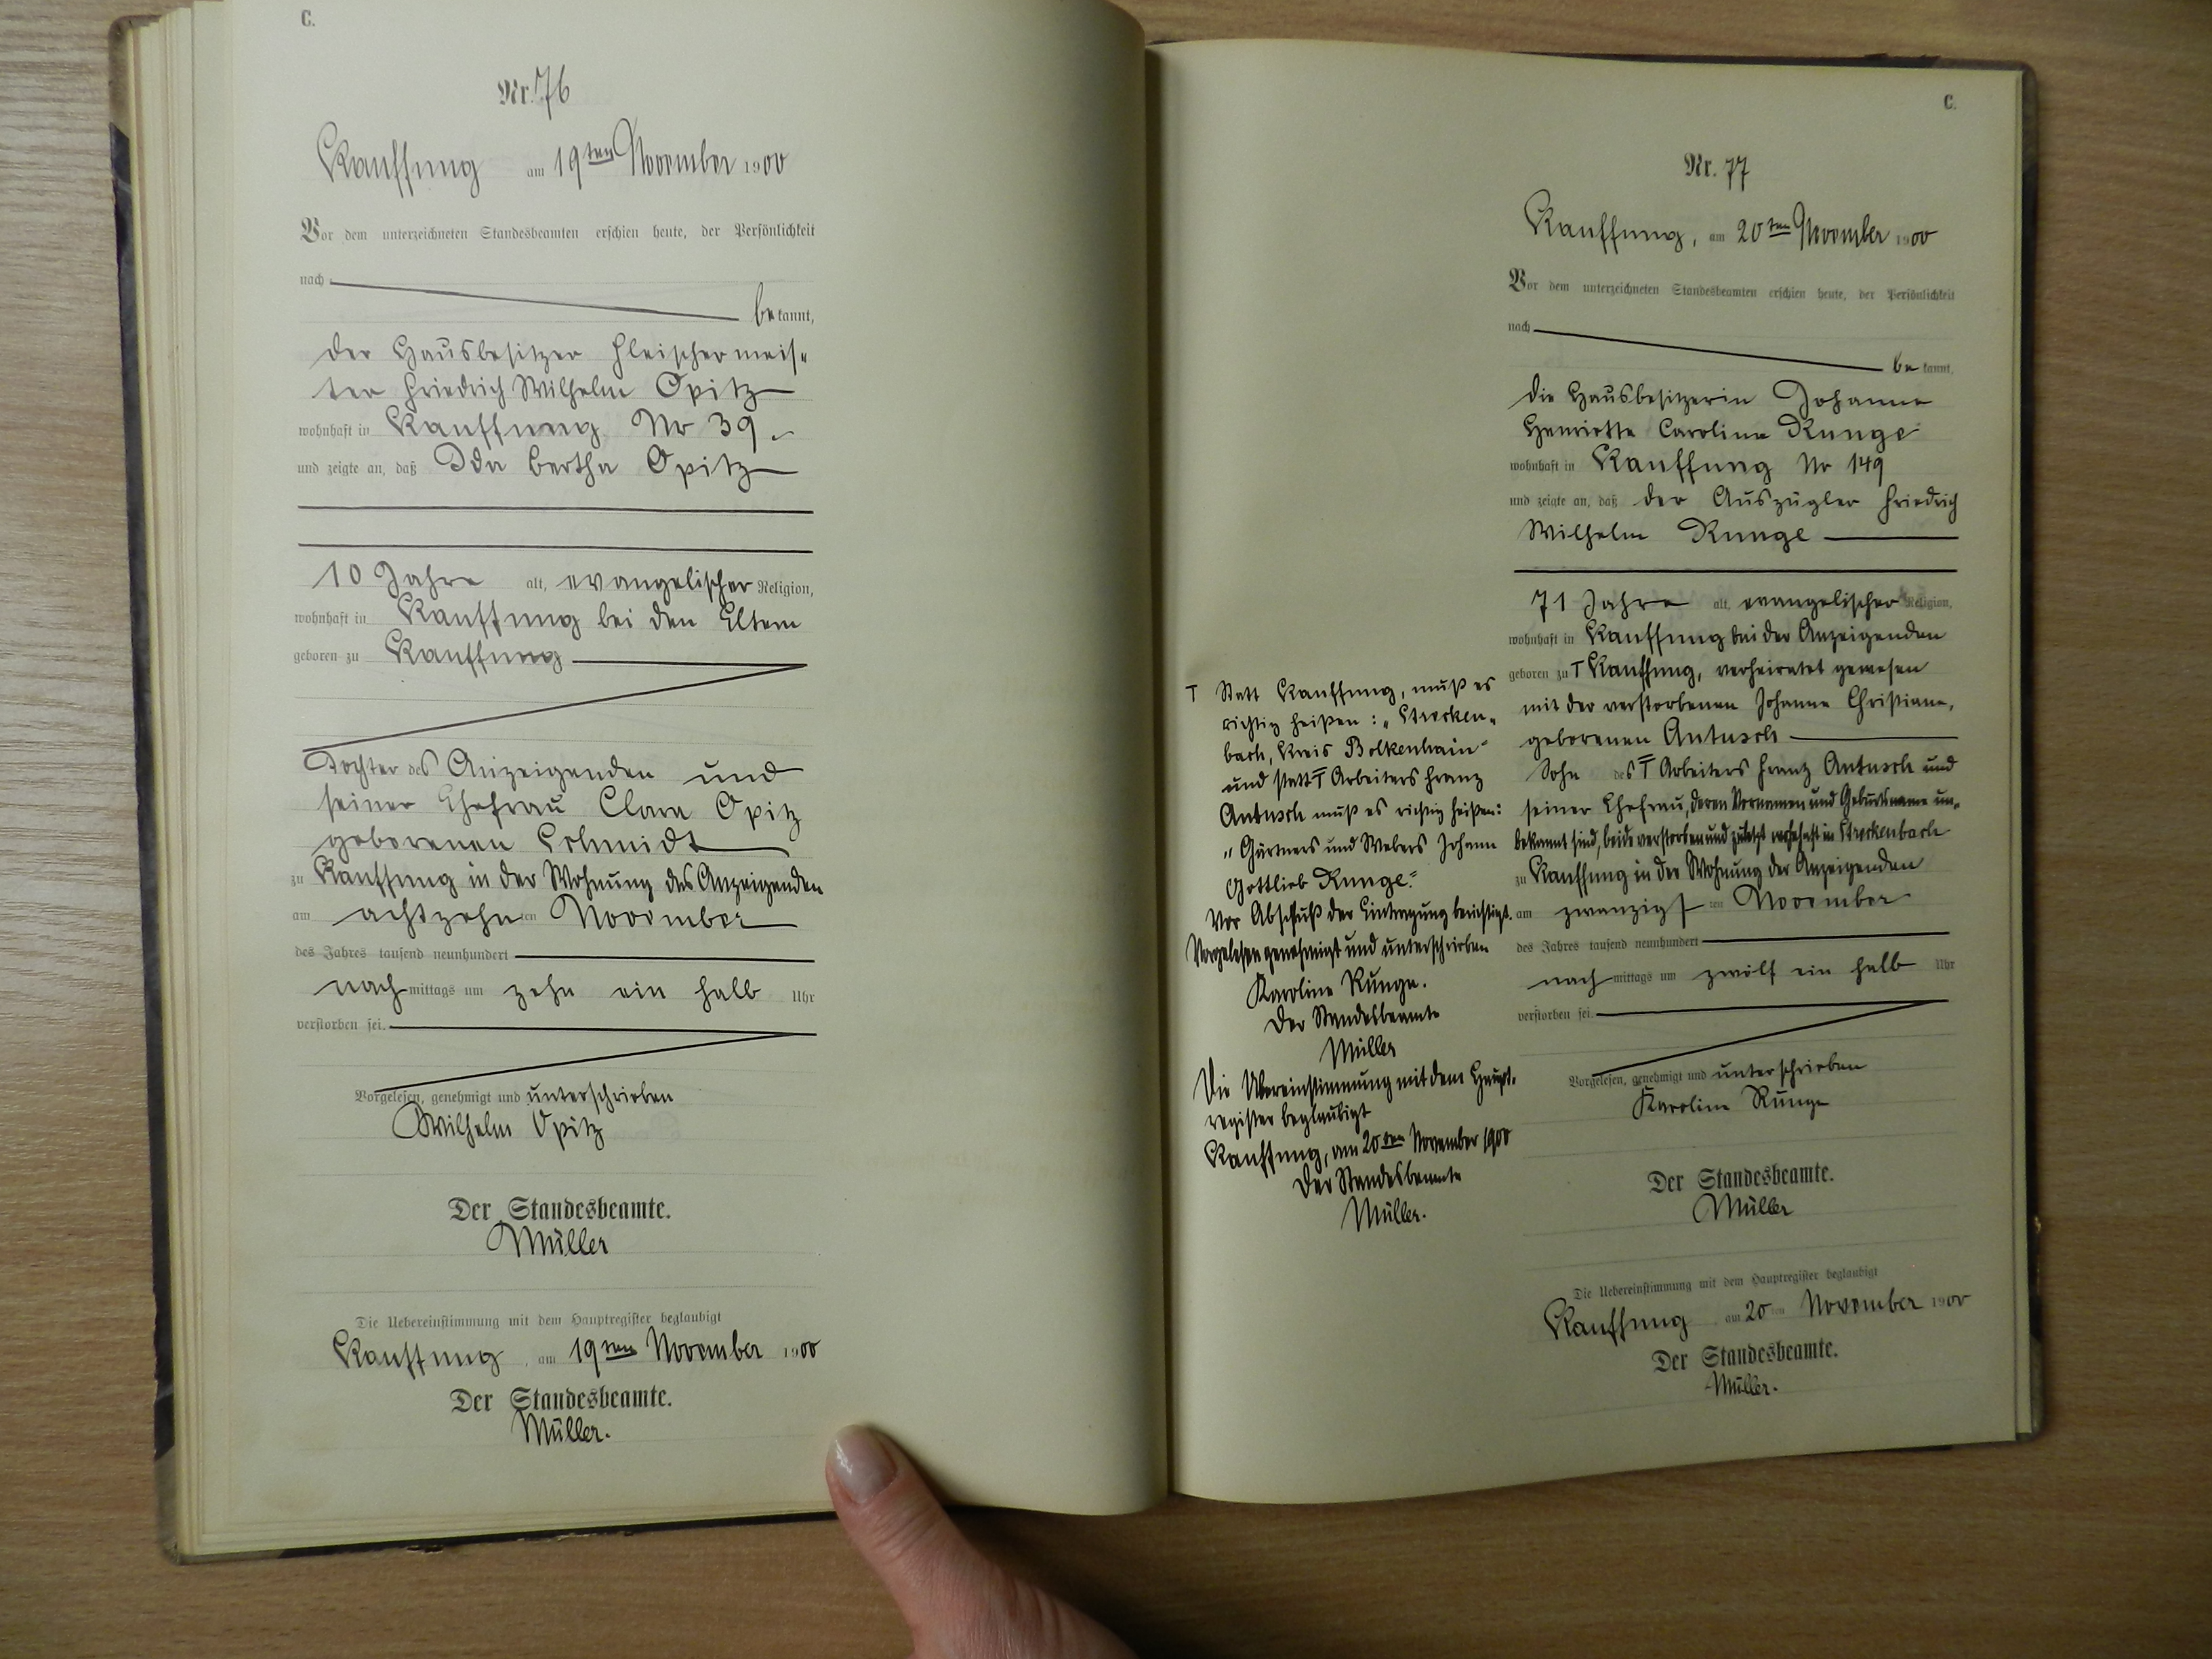 C.
Nr. 76
Kauffung am 19ten November 1900
Vor dem unterzeichneten Standesbeamten erschien heute, der Persönlichkeit
nach
bekannt,
der Hausbesitzer Fleischermeis=
ter Friedrich Wilhelm Opitz
wohnhaft in Kauffung No 39.
und zeigte an, daß Ida Bertha Opitz
10 Jahre alt, evangelischer Religion,
wohnhaft in Kauffung bei den Eltern
geboren zu Kauffung
Tochter des Anzeigenden und
seiner Ehefrau Clara Opitz
geborenen Schmidt
zu Kauffung in der Wohnung des Anzeigenden
am achtzehn ten November
des Jahres tausend neunhundert
nachmittags um zehn ein halb Uhr
verstorben sei.
Vorgelesen, genehmigt und unterschrieben
Wilhelm Opitz
Der Standesbeamte.
Müller
Die Uebereinstimmung mit dem Hauptregister beglaubigt
Kauffung, am 19ten November 1900
Der Standesbeamte.
Müller.
C.
Nr. 77
Kauffung, am 20ten November 1900
Vor dem unterzeichneten Standesbeamten erschien heute, der Persönlichkeit
nach
bekannt,
die Hausbesitzerin Johanne
Henriette Caroline Runge
wohnhaft in Kauffung No 149
und zeigte an, daß der Auszügler Friedrich
Wilhelm Runge
71 Jahre alt, evangelischer Religion,
wohnhaft in Kauffung bei der Anzeigenden
geboren zu T Kauffung, verheiratet gewesen
mit der verstorbenen Johanne Christiane,
geborenen Antusch
Sohn des T Arbeiters Franz Antusch und
seiner Ehefrau, deren Vornamen und Geburtsname un=
bekannt sind, beide verstorben und zuletzt wohnhaft in Streckenbach
zu Kauffung in der Wohnung der Anzeigenden
am zwanzigsten November
des Jahres tausend neunhundert
nachmittags um zwölf ein halb Uhr
verstorben sei.
Vorgelesen, genehmigt und unterschrieben
Karoline Runge
Der Standesbeamte.
Müller
Die Uebereinstimmung mit dem Hauptregister beglaubigt
Kauffung am 20ten November 1900
Der Standesbeamte.
Müller.
T Statt Kauffung, muß es
richtig heißen: „Strecken=
bach, Kreis Bolkenhain“
und statt T Arbeiters Franz
Antusch muß es richtig heißen:
„Gärtners und Webers Johann
Gottlieb Runge.“
Vor Abschluß der Eintragung berichtigt.
Vorgelesen genehmigt und unterschrieben
Karoline Runge.
Der Standesbeamte
Müller
Die Übereinstimmung mit dem Haupt=
register beglaubigt
Kauffung, am 20ten November 1900
Der Standesbeamte
Müller.